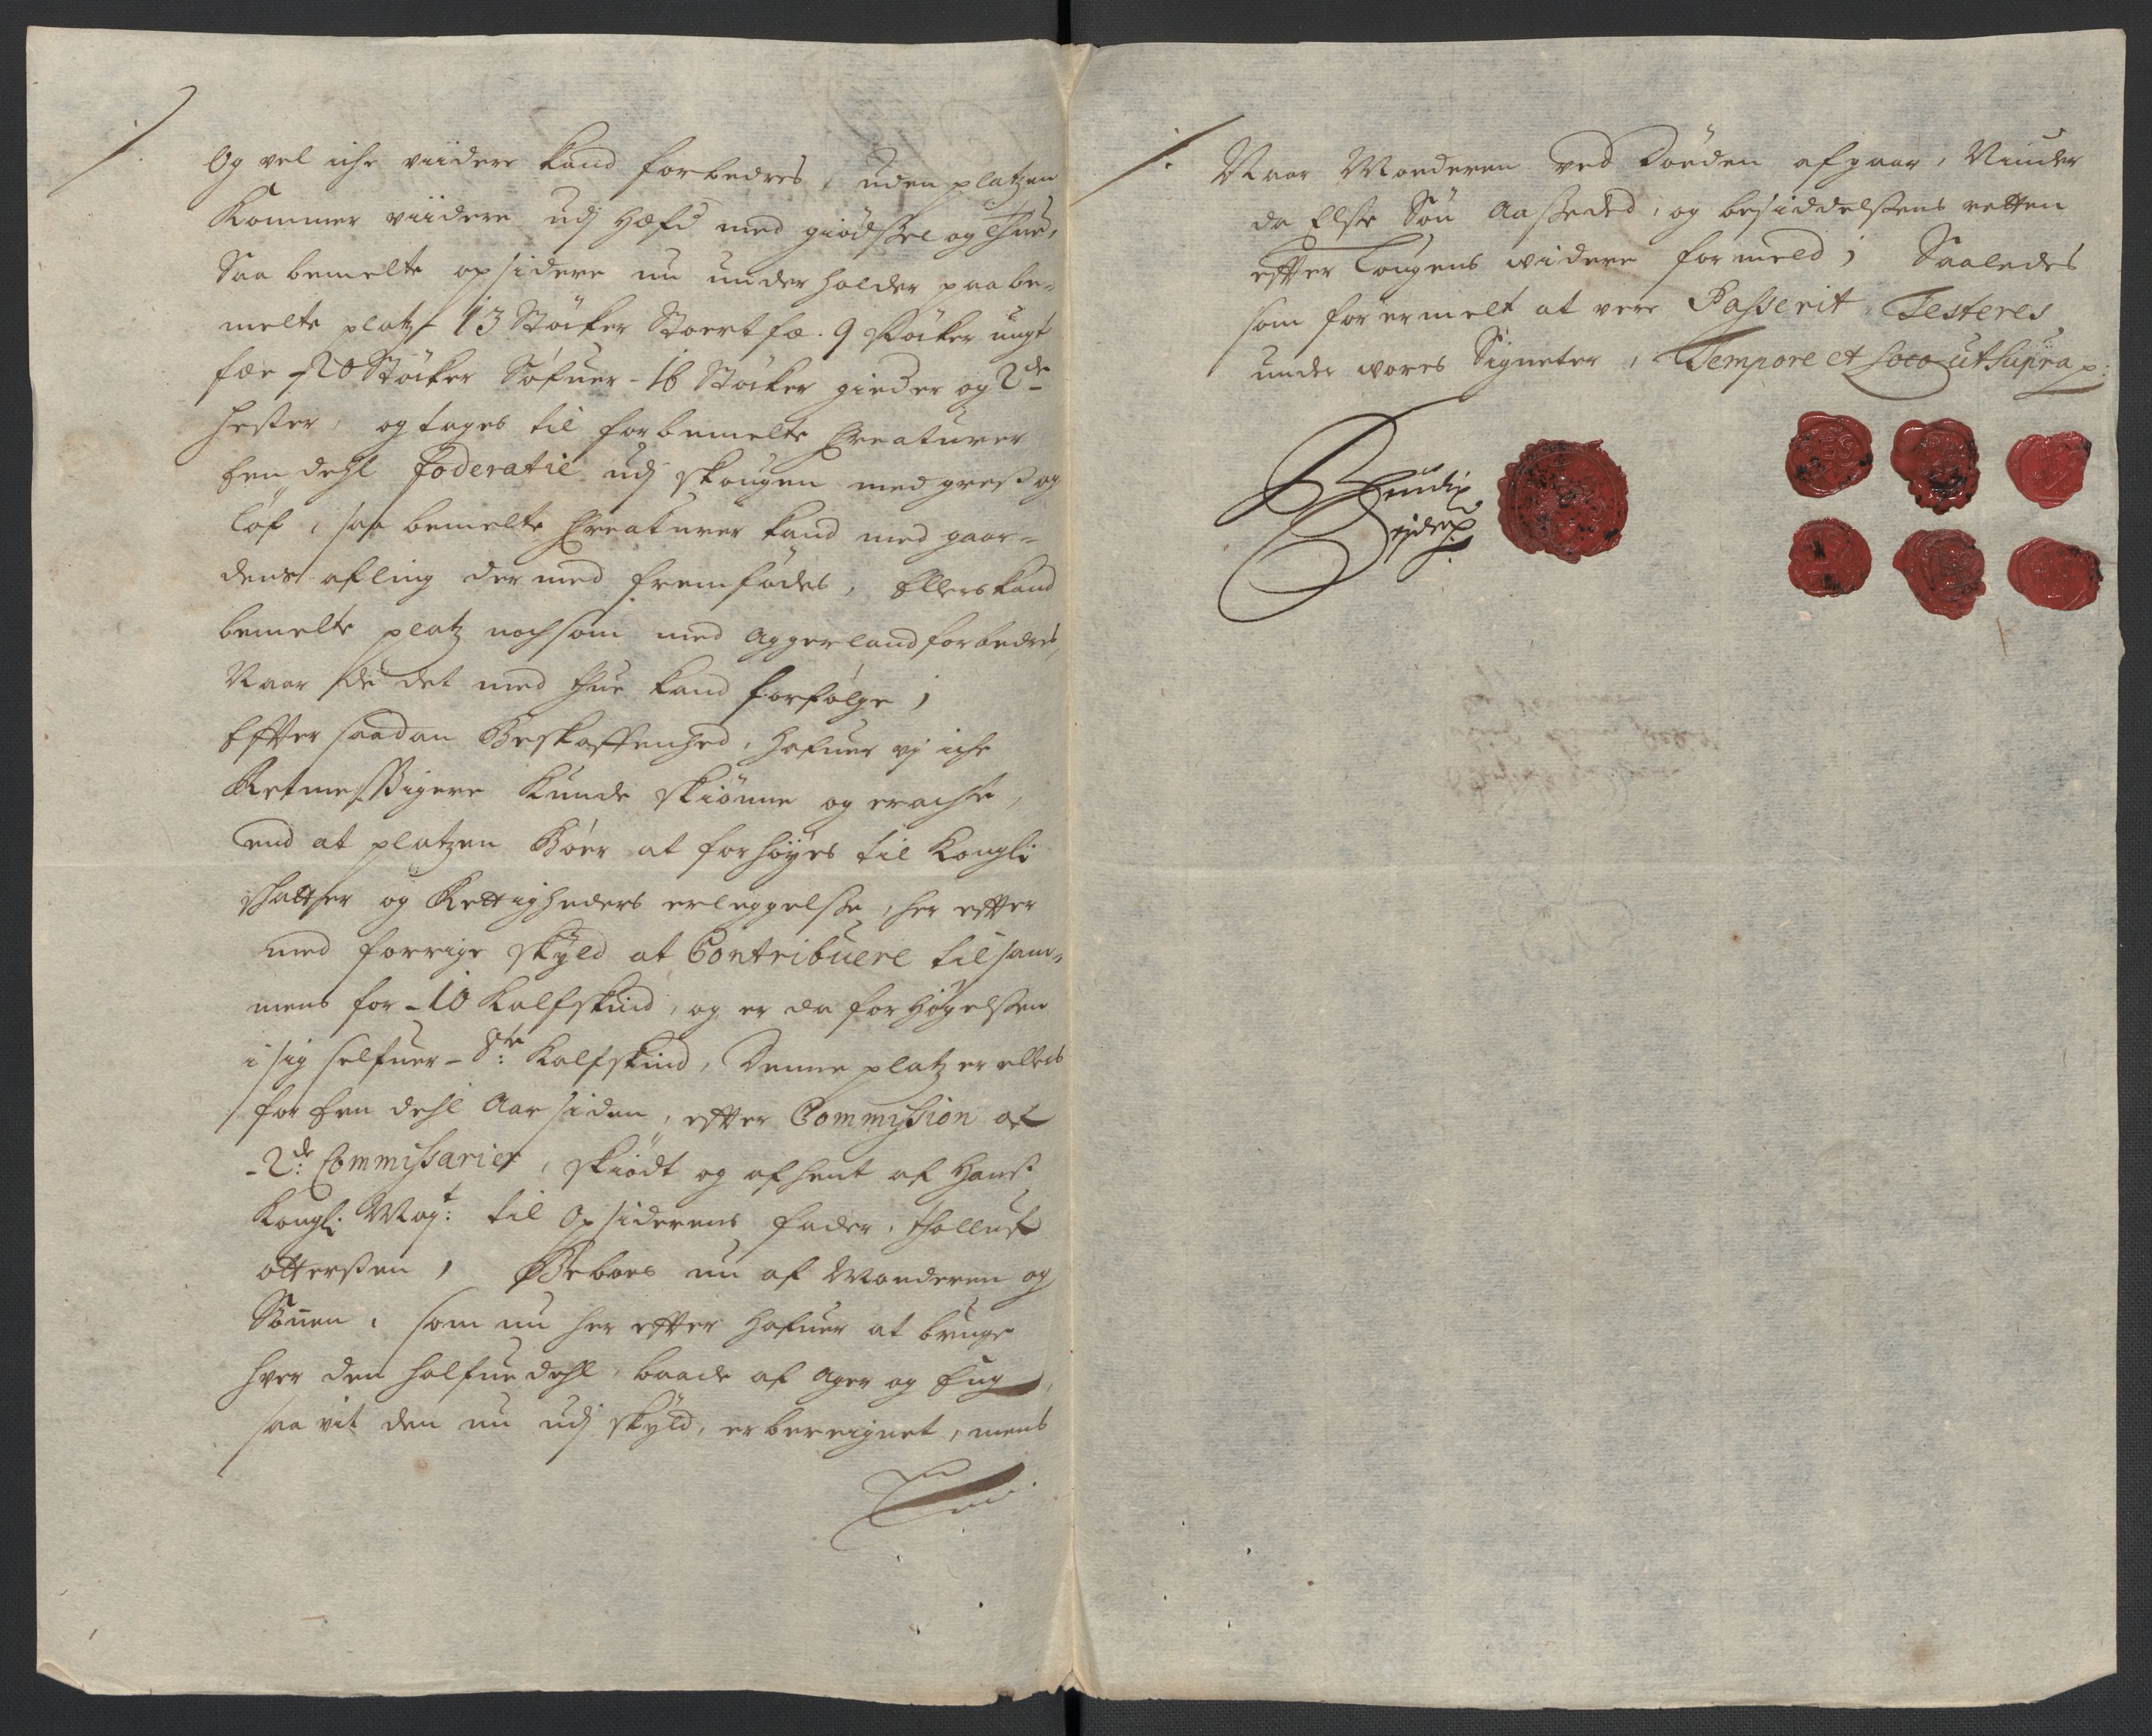 Og vel iche viidere kand forbedres, uden platzen
Kommer viidere udj Hæfd med giødssel og Thuë,
Saa bemelte opsidere nu underholder paa be-
melte platz - 13 Støcker Stoert fæ. 9 støcker ungt
fæe - 20 Støcker Søfuer - 16 Støcker gieder og 2de
hester, og tages til forbemelte Creaturer
Een dehl foderatie udj skougen med gress og
løf, saa bemelte Creaturer kand med gaar-
dens afling dermed fremfødes, Ellers kand
bemelte platz nochsom med Aggerland forbedres,
Naar de det med thuë kand forfølge;
Effter saadan Beskaffenhed, hafuer vj iche
Retmessigere Kunde skiønne og eracte,
end at platzen Bøer at forhøyes til Kongl:
Schatter og Rettigheders erleggelsse, her effter
med forrige skyld at Contribuere tilsam-
mens for - 10 Kalfskind, og er da forhøyelssen
i sig selfuer - 8te Kalfskind, Denne platz er ellers
for Een dehl Aar siden, effter Commission af
- 2de: Commissarier, skiødt og afhent af Hans
Kongl: May:t til Opsiderens fader, Tholluf
Ottersen, Beboes nu af Moederen og
Sønen, som nu her effter hafuer at bruge
hver den halfue dehl, baade af Ager og Eng,
saa vit den nu udj skyld, er bereignet, mens
Naar Moederen ved Døeden afgaar, Niuder
da Elste Søn Aassædet, og besiddelssens retten
effter Lougens widere formeld; Saaledes
som forermelt at vere Passerit Testeres
under vores Signeter, Tempore et Loco ut supra p: